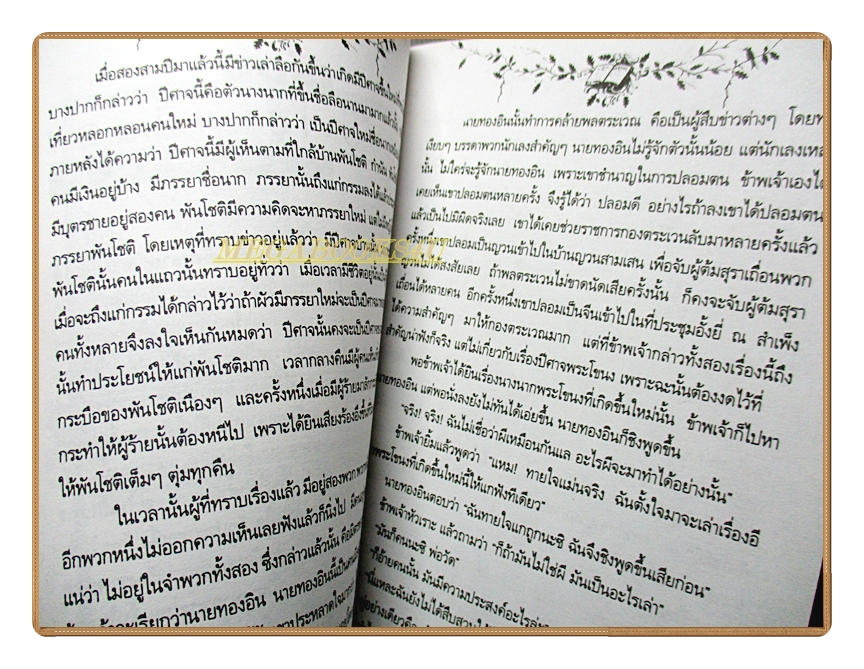 เมื่อสองสามปีมาแล้วนี้มีข่าวเล่าลือกันขึ้นว่าเกิดมีปีศาจขึ้นใหม่
บางปากก็กล่าวว่า ปีศาจนี้คือตัวนางนากที่ขึ้นชื่อลือนามมามากแล้ว
เที่ยวหลอกหลอนคนใหม่ บางปากก็กล่าวว่า เป็นปีศาจใหม่ชื่อนาก
ภายหลังได้ความว่า ปีศาจนี้มีผู้เห็นตามที่ใกล้บ้านพันโชติ กำนัน
คนมีเงินอยู่บ้าง มีภรรยาชื่อนาก ภรรยานั้นถึงแก่กรรมลงได้
มีบุตรชายอยู่สองคน พันโชติมีความคิดจะหาภรรยาใหม่ แต่
ภรรยาพันโชติ โดยเหตุที่ทราบข่าวอยู่แล้วว่า มีปีศาจ
พันโชตินั้นคนในแถวนั้นทราบอยู่ทั่วว่า เมื่อเวลามีชีวิตอยู่นั้น
เมื่อจะถึงแก่กรรมได้กล่าวไว้ว่าถ้าผัวมีภรรยาใหม่จะเป็นปีศาจมา
คนทั้งหลายจึงลงใจเห็นกันหมดว่า ปีศาจนั้นคงจะเป็นปีศาจ
นั้นทำประโยชน์ให้แก่พันโชติมาก เวลากลางคืนมีผู้คน
กระบือของพันโชติเนืองๆ และครั้งหนึ่งเมื่อมีผู้ร้ายมาลัก
กระทำให้ผู้ร้ายนั้นต้องหนีไป เพราะได้ยินเสียงร้อง
ให้พันโชติเต็มๆ ตุ่มทุกคืน
ในเวลานั้นผู้ที่ทราบเรื่องแล้ว มีอยู่สองพวก พวก
อีกพวกหนึ่งไม่ออกความเห็นเลยฟังแล้วก็นิ่งไป
แน่ว่า ไม่อยู่ในจำพวกทั้งสอง ซึ่งกล่าวแล้วนั้น คือ
จะเรียกว่านายทองอิน นายทองอินนี้เป็นคน
ประหลาดใจ
MEGA BOOKS4U
นายทองอินนั้นทำการคล้ายพลตระเวณ คือเป็นผู้สืบข่าวต่างๆ โดย
เงียบๆ บรรดาพวกนักเลงสำคัญๆ นายทองอินไม่รู้จักตัวนั้นน้อย แต่นักเลง
นั้น ไม่ใคร่จะรู้จักนายทองอิน เพราะเขาชำนาญในการปลอมตน ข้าพเจ้าเองได้
เคยเห็นเขาปลอมตนหลายครั้ง จึงรู้ได้ว่า ปลอมดี อย่างไรถ้าลงเขาได้ปลอมตน
แล้วเป็นไปมิผิดจริงเลย เขาได้เคยช่วยราชการกองตระเวนลับมาหลายครั้งแล้ว
ครั้งหนึ่งเขาปลอมเป็นญวนเข้าไปในบ้านญวนสามเสน เพื่อจับผู้ต้มสุราเถื่อนพวก
ญวนไม่ได้สงสัยเลย ถ้าพลตระเวนไม่ขาดนัดเสียครั้งนั้น ก็คงจะจับผู้ต้มสุรา
เถื่อนได้หลายคน อีกครั้งหนึ่งเขาปลอมเป็นจีนเข้าไปในที่ประชุมอั้งยี่ ณ สำเพ็ง
ได้ความสำคัญๆ มาให้กองตระเวณมาก แต่ที่ข้าพเจ้ากล่าวทั้งสองเรื่องนี้ถึง
สำคัญน่าฟังก็จริง แต่ไม่เกี่ยวกับเรื่องปีศาจพระโขนง เพราะฉะนั้นต้องงดไว้ที
พอข้าพเจ้าได้ยินเรื่องนางนากพระโขนงที่เกิดขึ้นใหม่นั้น ข้าพเจ้าก็ไปหา
นายทองอิน แต่พอนั่งลงยังไม่ทันได้เอ่ยขึ้น นายทองอินก็ชิงพูดขึ้น
"จริง! จริง! ฉันไม่เชื่อว่าผีเหมือนกันแล อะไรผีจะมาทำได้อย่างนั้น"
ข้าพเจ้ายิ้มแล้วพูดว่า "แหม! ทายใจแม่นจริง ฉันตั้งใจมาจะเล่าเรื่องอี
นากพระโขนงที่เกิดขึ้นใหม่นี้ให้แกฟังทีเดียว"
นายทองอินตอบว่า "ฉันทายใจแกถูกนะซิ ฉันจึงชิงพูดขึ้นเสียก่อน"
ข้าพเจ้าหัวเราะ แล้วถามว่า "ก็ถ้ามันไม่ใช่ผี มันเป็นอะไรเล่า"
"มันก็คนนะซิ พ่อวัด"
"ก็อ้ายคนนั้น มันมีความประสงค์อะไร
"นี่แหละฉันยังไม่ได้สืบสวน